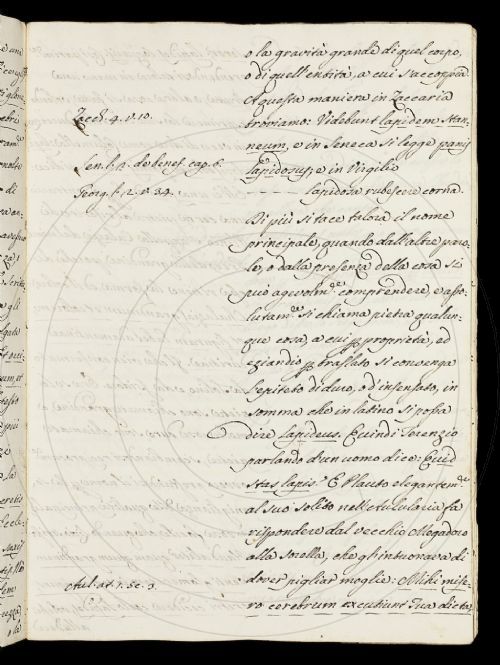 o la gravità grande di quel corpo,
o di quell'entità, a cui s'accoppia.
A questa maniera in Zaccaria
Zacch. 4. v. 10.
troviamo: Videbunt lapidem stan-
neum, e in Seneca si legge panis
Sen. l. 2. de benef. cap. 6.
lapidosus, e in Virgilio
Georg. l. 2. v. 34.
- - - - lapidosa rubescere corna.
Di più si tace talora il nome
principale, quando dall'altre paro-
le, o dalla presenza della cosa si
può agevolm.te comprendere, e asso-
lutam.te si chiama pietra qualun-
que cosa, a cui p proprietà, ed
eziandio p traslato si convenga
l'epiteto di duro, o d'insensato, in
somma che in latino si possa
dire lapideus. Quindi Terenzio
parlando d'un uomo dice: Quid
stas lapis? E Plauto elegantem.te
al suo solito nell'Aulularia fa
rispondere dal vecchio Megadoro
alla sorella, che gl'intuonava di
Aul. at. 1. Sc. 3.
dover pigliar moglie: Mihi mise-
ro cerebrum excutiunt Tua dicta,